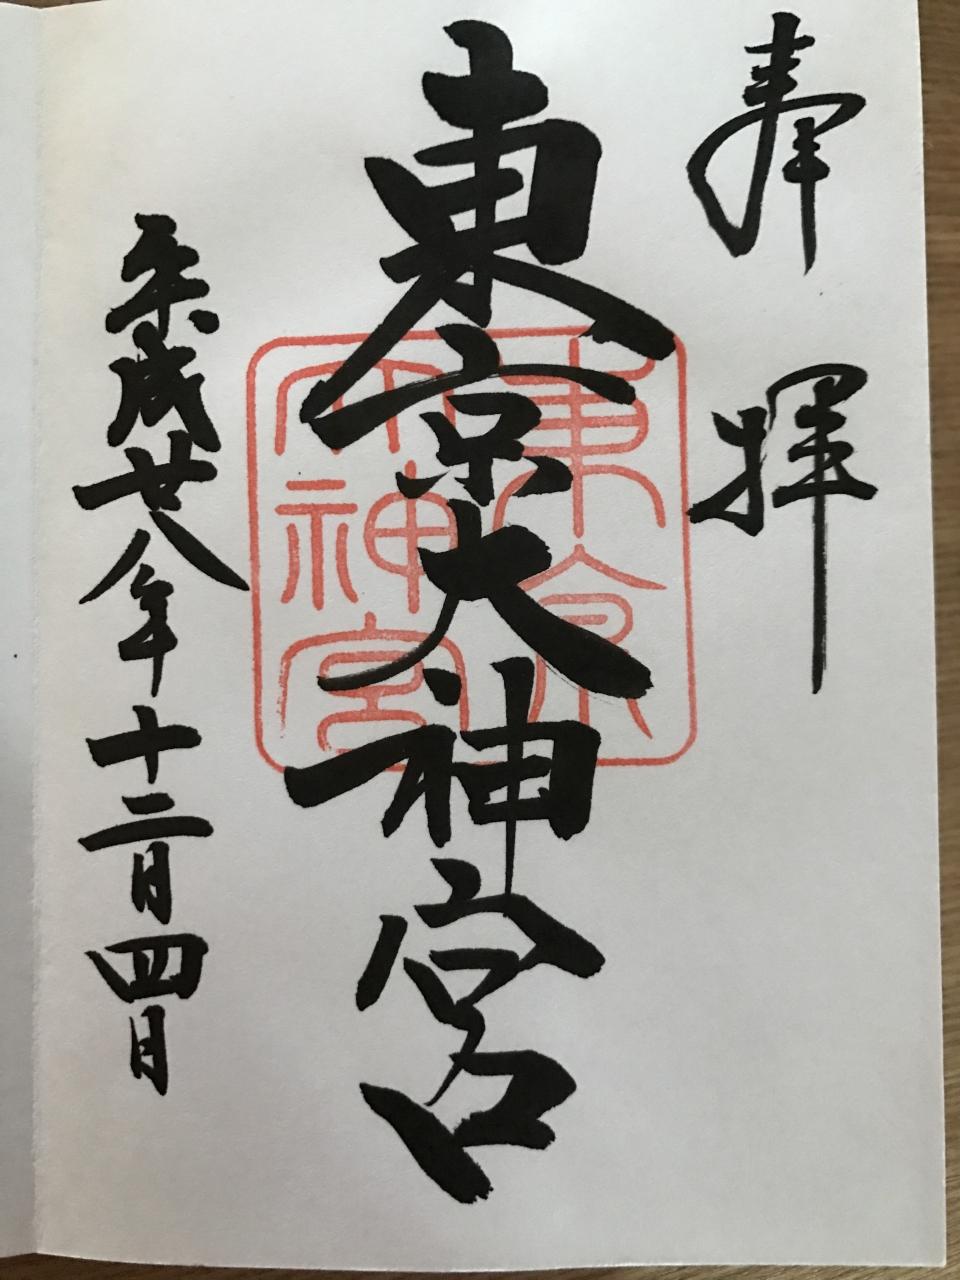 奉拝
東京大神宮
東京
大神宮
平成廿八年十二月四日